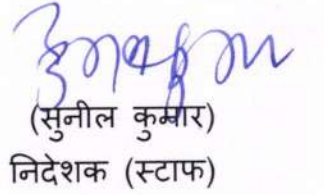 (सुनील कुमार)
निदेशक (स्टाफ)